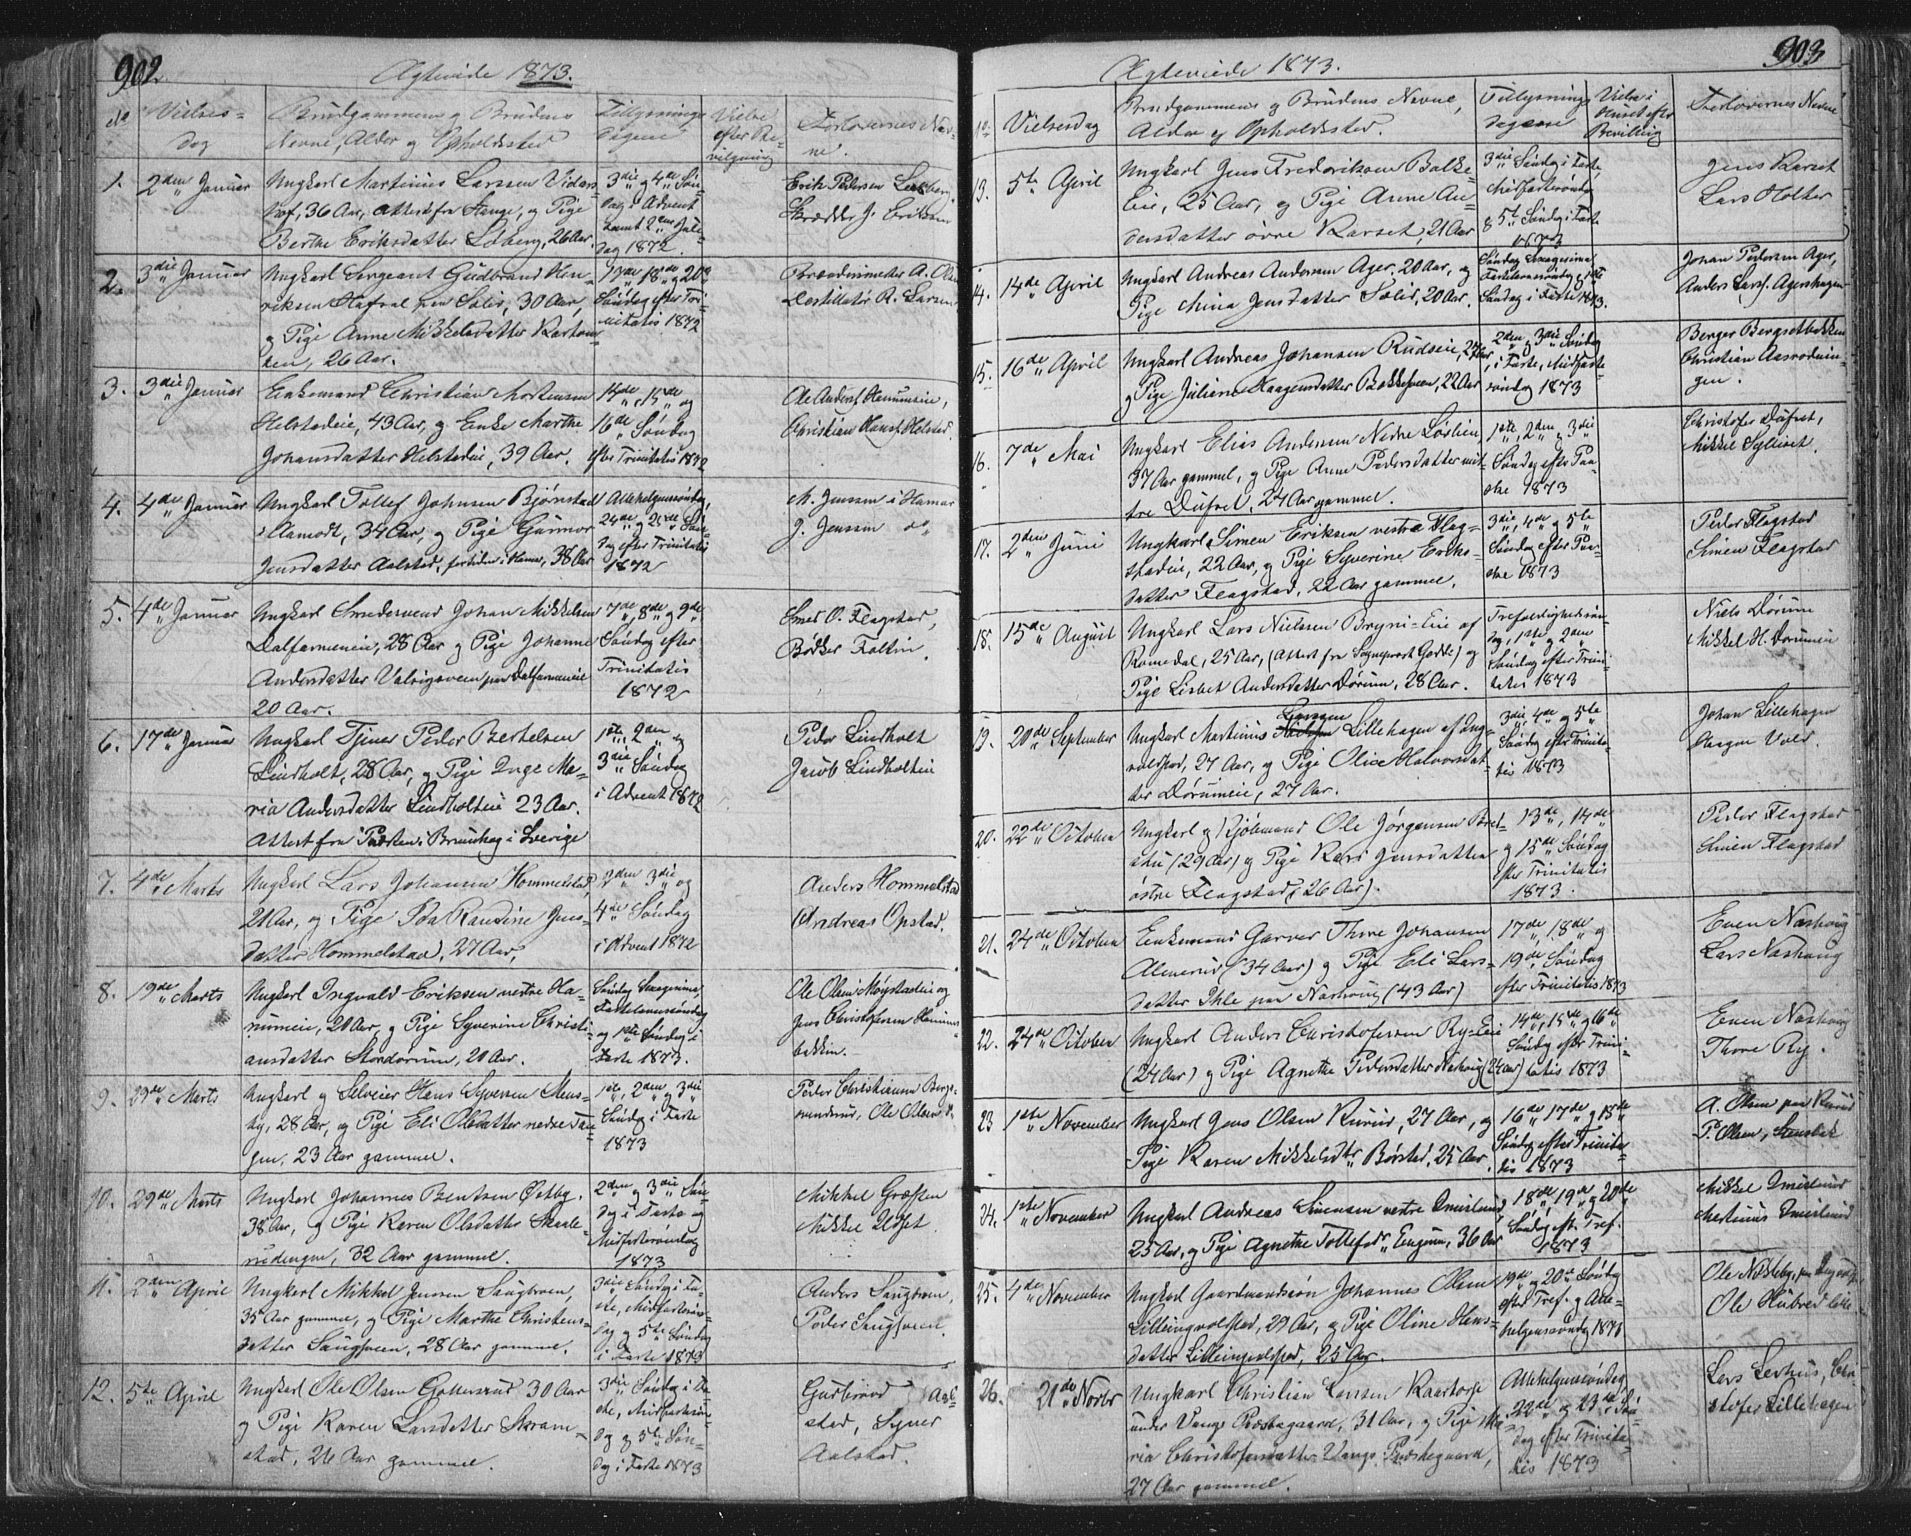 902
Ægteviede 1873.
No
Vielses-
dag
Brudgommens og Brudens
Nevne, Alder og Opholdssted
Tillysnings
dagene
Vielse
efter Be-
vilgning
Forlovernes Nav-
ne.
1.
2den Januar
Ungkarl Martinus Larssen Vidars-
hof, 36 Aar, Attest fra Stange, og Pige
Berthe Eriksdatter Loberg, 26 Aar.
3die og 4de Søn-
dag i Advent
samt 2den Jule-
dag 1872.
Erik Pedersen
Skrædder J. Eriksen
2.
3die Januar
Ungkarl Sergeant Gudbrand Hen-
riksen, 30 Aar,
og Pige Anne Mikkelsdatter
26 Aar.
Søndag efter Tri-
nitatis 1872
A. Olsen
Destillatør R. Larsen
3.
3die Januar
Enkemand Christian Mortensen
Helstadeie, 43 Aar, og Enke Marthe
Johansdatter Helstadeie, 39 Aar.
14de, 15de og
16de Søndag
efter Trinitatis 1872
Christian Hansf. Helstad.
4.
4de Januar
Ungkarl Tollef Johnsen Bjørnstad
i Aamodt, 34 Aar, og Pige Gunnor
Jensdatter Aalstad, fortiden i Hamar, 38 Aar
Allehelgenssøndag,
24de og 25de Søn-
dag efter Trinitatis
1872
M. Jenssen i Hamar
J. Jenssen do
5.
4de Januar
Ungkarl Snedkersvend Johan Mikkelsen
Dalfarmeneie, 28 Aar og Pige Johanne
Andersdatter Valrigsveen paa Dalfarmeneie
20 Aar.
7de, 8de og 9de
Søndag efter
Trinitatis
1872
O. Flagstad,
Bødker Foltin.
6.
17de Januar
Ungkarl Tjener Peder Bertelsen
Lindholt, 28 Aar, og Pige Inge Ma-
ria Andersdatter Lindholteie 23 Aar.
Attest fra Præsten i Brunskog i Sverige
1ste, 2den og
3die Søndag
i Advent 1872
Peder Lindholt
Jacob Lindholteie
7.
4de Marts
Ungkarl Lars Johansen Hommelstad,
21 Aar, og Pige Ida Randine Jens-
datter Hommelstad, 27 Aar,
2den 3die og
4de Søndag
i Advent 1872
Anders Hommelstad
Andreas Opstad.
8.
19de Marts
Ungkarl Ingvald Eriksen nestre Ha-
rumeie, 20 Aar, og Pige Syverine Christi-
ansdatter Stordorum, 20 Aar.
Søndag Sexagesima,
Fastelavnssøndag
og 1ste Søndag i
Faste 1873.
Ole Olsen Møystadeie og
Jens Christofersen
bakken.
9.
29de Marts
Ungkarl og Selveier Hans Syversen Mens-
by, 28 Aar, og Pige Eli Olsdatter nedre Tan-
gen, 23 Aar gammel.
1ste, 2den og 3die
Søndag i Faste
1873
Peder Christiansen
Ole Olsen
10.
29de Marts
Ungkarl Johannes Bentsen Østby,
38 Aar, og Pige Karen Olsdatter Skaale-
rudengen, 32 Aar gammel.
2den og 3die Søn-
dag i Faste og
Midfastesøndag
1873
Mikkel Græsten
Mikkel
11.
2den April
Ungkarl Mikkel Jensen Saugsveen,
35 Aar gammel, og Pige Marthe Christens-
datter Saugsveen, 28 Aar gammel.
3die Søndag i Fa-
ste, Midfastesøn-
dag og 5te Søndag
i Faste 1873
Anders Saugsveen,
Peder Saugsveen.
12.
5te April
Ungkarl Ole Olsen Gottersrud 30 Aar
og Pige Karen Larsdatter Skram-
stad, 26 Aar gammel.
3die Søndag i Fa-
ste, Midfastesøn-
dag og 5te Søn-
dag i Faste 1873
Gudbrand Aal-
stad, Syver
Aalstad.
903
Ægteviede 1873.
No
Vielsesdag
Brudgommens og Brudens Nevne,
Alder og Opholdssted.
Tillysnings
dagene
Vielse i
Huset efter
Bevilling
Forlovernes Nevne
13.
5te April
Ungkarl Jens Frederiksen Bakke-
eie, 25 Aar, og Pige Anne An-
dersdatter øvre Karset, 21 Aar
3die Søndag i Faste,
Midfastesøndag
& 5te Søndag i Faste
1873
Jens Karset
Lars Holter
14.
14de April
Ungkarl Andreas Andersen Ager, 20 Aar, og
Pige Mina Jensdatter Solid, 20 Aar.
Søndag Sexagesima,
Fastelavnssøndag, 1ste
Søndag i Faste 1873.
Johan Pedersen Ager,
Anders Larsf. Agershagen
15.
16de April
Ungkarl Andreas Johansen Rudseie, 24 Aar,
og Pige Juliane Haagensdatter Bakkesveen, 22 Aar
2den, 3die Søndag
i Faste, Midfaste-
søndag 1873
Berger Bergsetbakken
Christian Aasrudein-
gen.
16.
7de Mai
Ungkarl Elias Andersen Nedre Løslien
37 Aar gammel, og Pige Anne Pedersdatter mit-
tre Dufset, 24 Aar gammel.
1ste, 2den, 3die
Søndag efter Paa-
ske 1873
Christofer Dufset,
Mikkel Syliset
17.
2den Juni
Ungkarl Simen Eriksen vestre Flag-
stadeie, 22 Aar, og Pige Syverine Eriks-
datter Flagstad, 22 Aar gammel.
3die, 4de og 5te
Søndag efter Paa-
ske 1873
Peder Flagstad
Simen Flagstad
18.
15de August
Ungkarl Lars Nielsen Bryni-Eie af
Romedal, 25 Aar, (Attest fra Sogneprest Gødde) og
Pige Lisbet Andersdatter Dørum, 28 Aar.
Trefoldighedssøn-
dag, 1ste og 2den
Søndag efter Trini-
tatis 1873
Niels Dørum
Mikkel H. Dørumeie
19.
20de September
Ungkarl Martinus Larssen Lillehagen af Ing-
valdstad, 27 Aar, og Pige Oliea Halvorsdat-
ter Dørumeie, 27 Aar.
3die, 4de og 5te
Søndag efter Trinita-
tis 1873
Johan Lillehagen
Haagen Vold.
20.
22de October
Ungkarl og Kjøbmand Ole Jørgensen Bret-
(29 Aar) og Pige Kari Jensdatter
østre Flagstad (26 Aar).
13de, 14de
og 15de Søndag
efter Trinitatis
1873.
Peder Flagstad
Simen Flagstad
21.
24de October
Enkemand Garver Thore Johansen
Almerud (34 Aar) og Pige Eli Lars-
datter Ihle paa Nashoug (43 Aar)
17de, 18de og
19de Søndag
efter Trinitatis 1873
Even Nashoug
Lars Nashoug
22.
24de October
Ungkarl Anders Christofersen Ry-Eie
(24 Aar) og Pige Agnethe Pedersdatter Nashoug (24 Aar)
14de, 15de og 16de
Søndag efter Trini-
tatis 1873
Even Nashoug
Thore Ry.
23
1ste November
Ungkarl Jens Olsen Rurud, 27 Aar, og
Pige Karen Mikkelsdtr Børstad, 25 Aar.
16de, 17de og 18de
Søndag efter Trinita-
tis 1873
A. Olsen paa Rurud
P. Olsen, Stensbæk
24.
1ste November
Ungkarl Andreas Simensen vestre Imislund,
25 Aar, og Pige Agnethe Tollefsd. Eugum, 36 Aar
18de, 19de og 20de
Søndag eft. Tref.
1873
Mikkel Imislund
Martinus Imislund
25.
4de November
Ungkarl Gaardmandssøn Johannes Olsen
Lilleingvalstad, 29 Aar, og Pige Oline Hans-
datter Lilleingvalstad, 25 Aar.
19de og 20de Søndag
efter Tref. og Alle-
helgenssøndag 1873
Ole
Ole
26.
21de Novbr
Ungkarl Christian Larsen Kaartorp
under Vangs Præstegaard, 31 Aar, og Pige Ma-
ria Christofersdatter Vangs Præstegaard,
27 Aar gammel.
Allehelgenssøndag,
22de og 23de Søn-
dag efter Trinita-
tis 1873
Lars Lerhus, Chri-
stofer Lillehagen